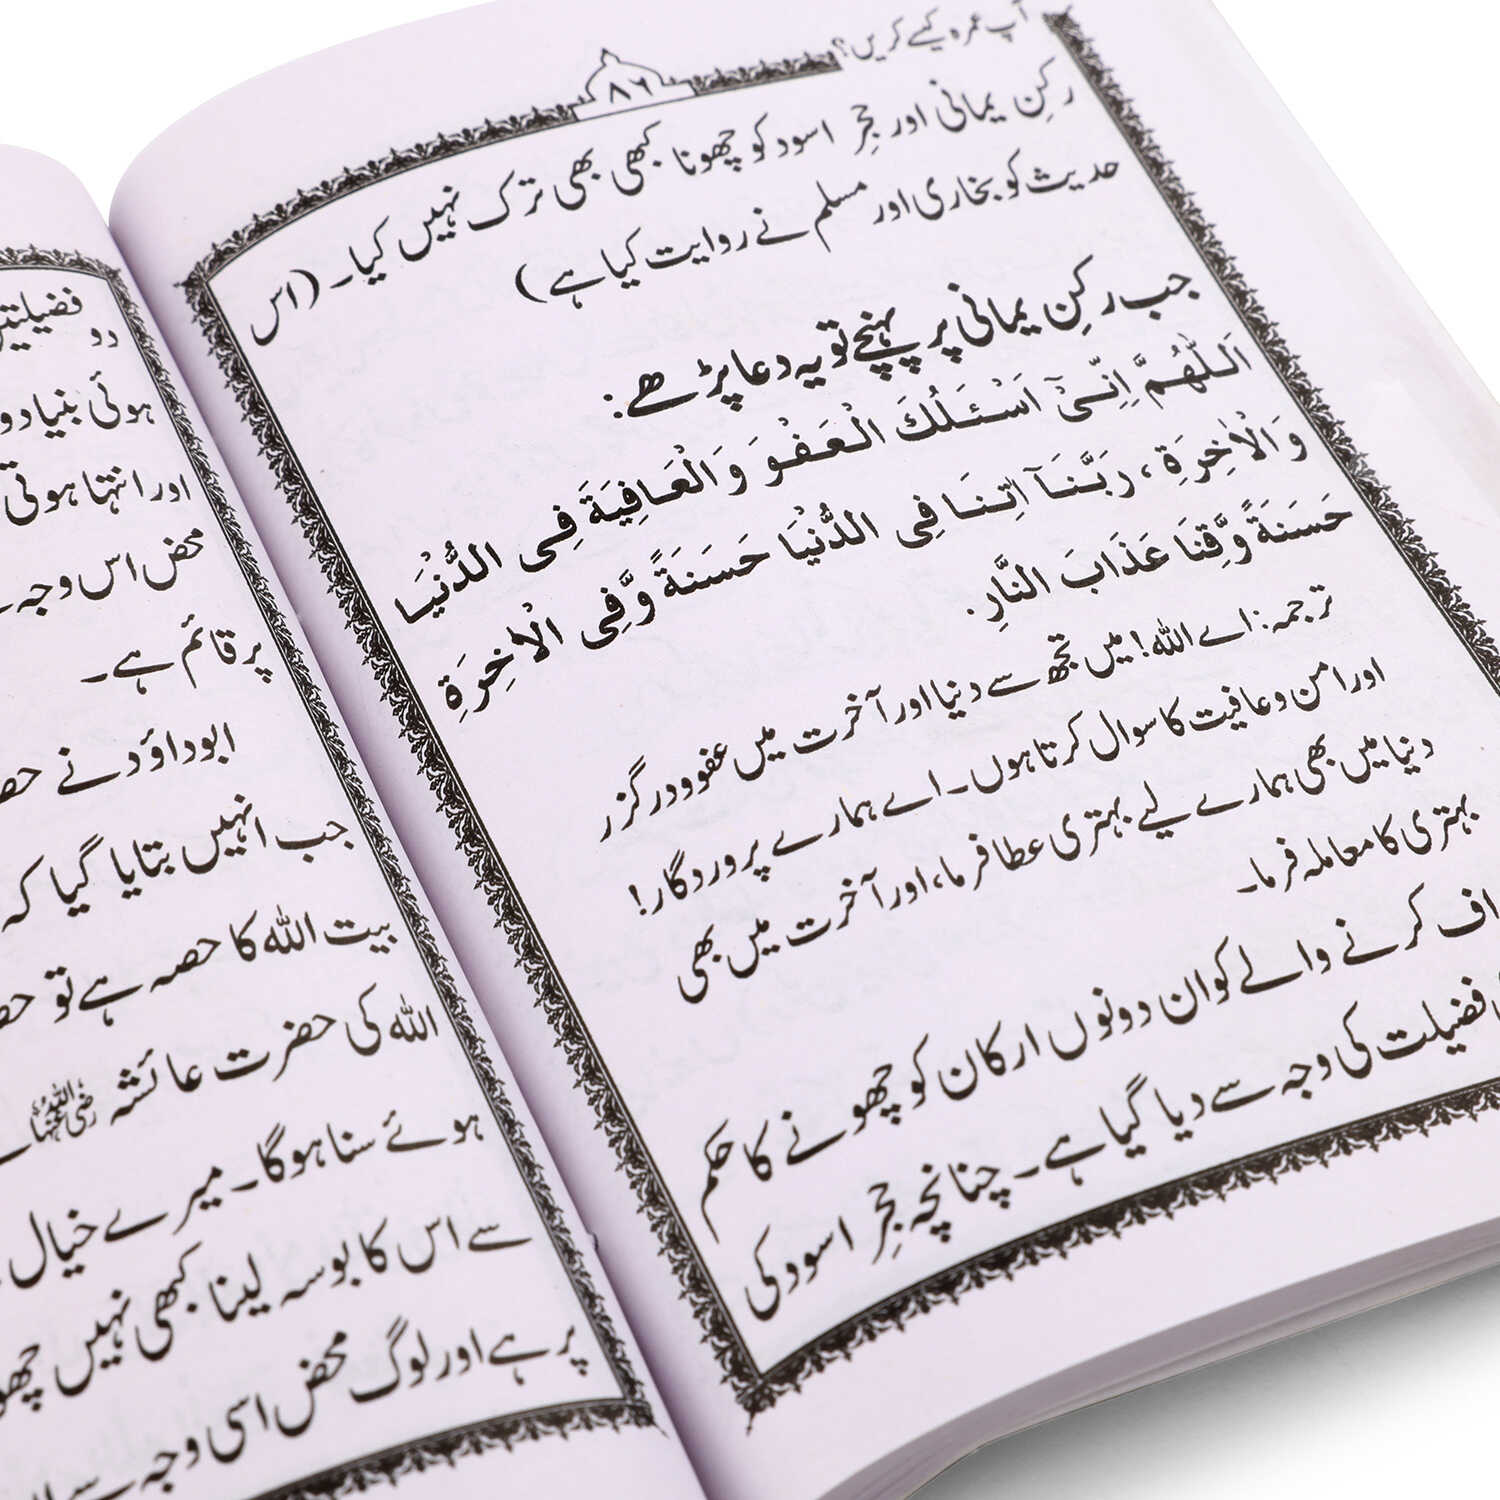 آپ عمرہ کیسے کریں؟
۸۶
رکنِ یمانی اور حجرِ اسود کو چھونا کبھی بھی ترک نہیں کیا۔ (اس
حدیث کو بخاری اور مسلم نے روایت کیا ہے)
جب رکنِ یمانی پر پہنچے تو یہ دعا پڑھے:
اَللّٰهُمَّ اِنِّیْٓ اَسْئَلُكَ الْعَفْوَ وَالْعَافِيَةَ فِی الدُّنْيَا
وَالْاٰخِرَةِ، رَبَّنَآ اٰتِنَا فِی الدُّنْيَا حَسَنَةً وَّفِی الْاٰخِرَةِ
حَسَنَةً وَّقِنَا عَذَابَ النَّارِ.
ترجمہ: اے اللہ! میں تجھ سے دنیا اور آخرت میں عفو و درگزر
اور امن و عافیت کا سوال کرتا ہوں۔ اے ہمارے پروردگار!
دنیا میں بھی ہمارے لیے بہتری عطا فرما، اور آخرت میں بھی
بہتری کا معاملہ فرما۔
اف کرنے والے کو ان دونوں ارکان کو چھونے کا حکم
فضیلت کی وجہ سے دیا گیا ہے۔ چنانچہ حجرِ اسود کی
دو فضیلتیں
ہوئی بنیادو
اور انتہا ہوتی
محض اس وجہ
پر قائم ہے۔
ابوداؤد نے حضر
جب انہیں بتایا گیا کہ
بیت اللہ کا حصہ ہے تو حضر
اللہ کی حضرت عائشہ رضی اللہ عنہا
ہوئے سنا ہوگا۔ میرے خیال
سے اس کا بوسہ لینا کبھی نہیں چھو
پر ہے اور لوگ محض اسی وجہ سے